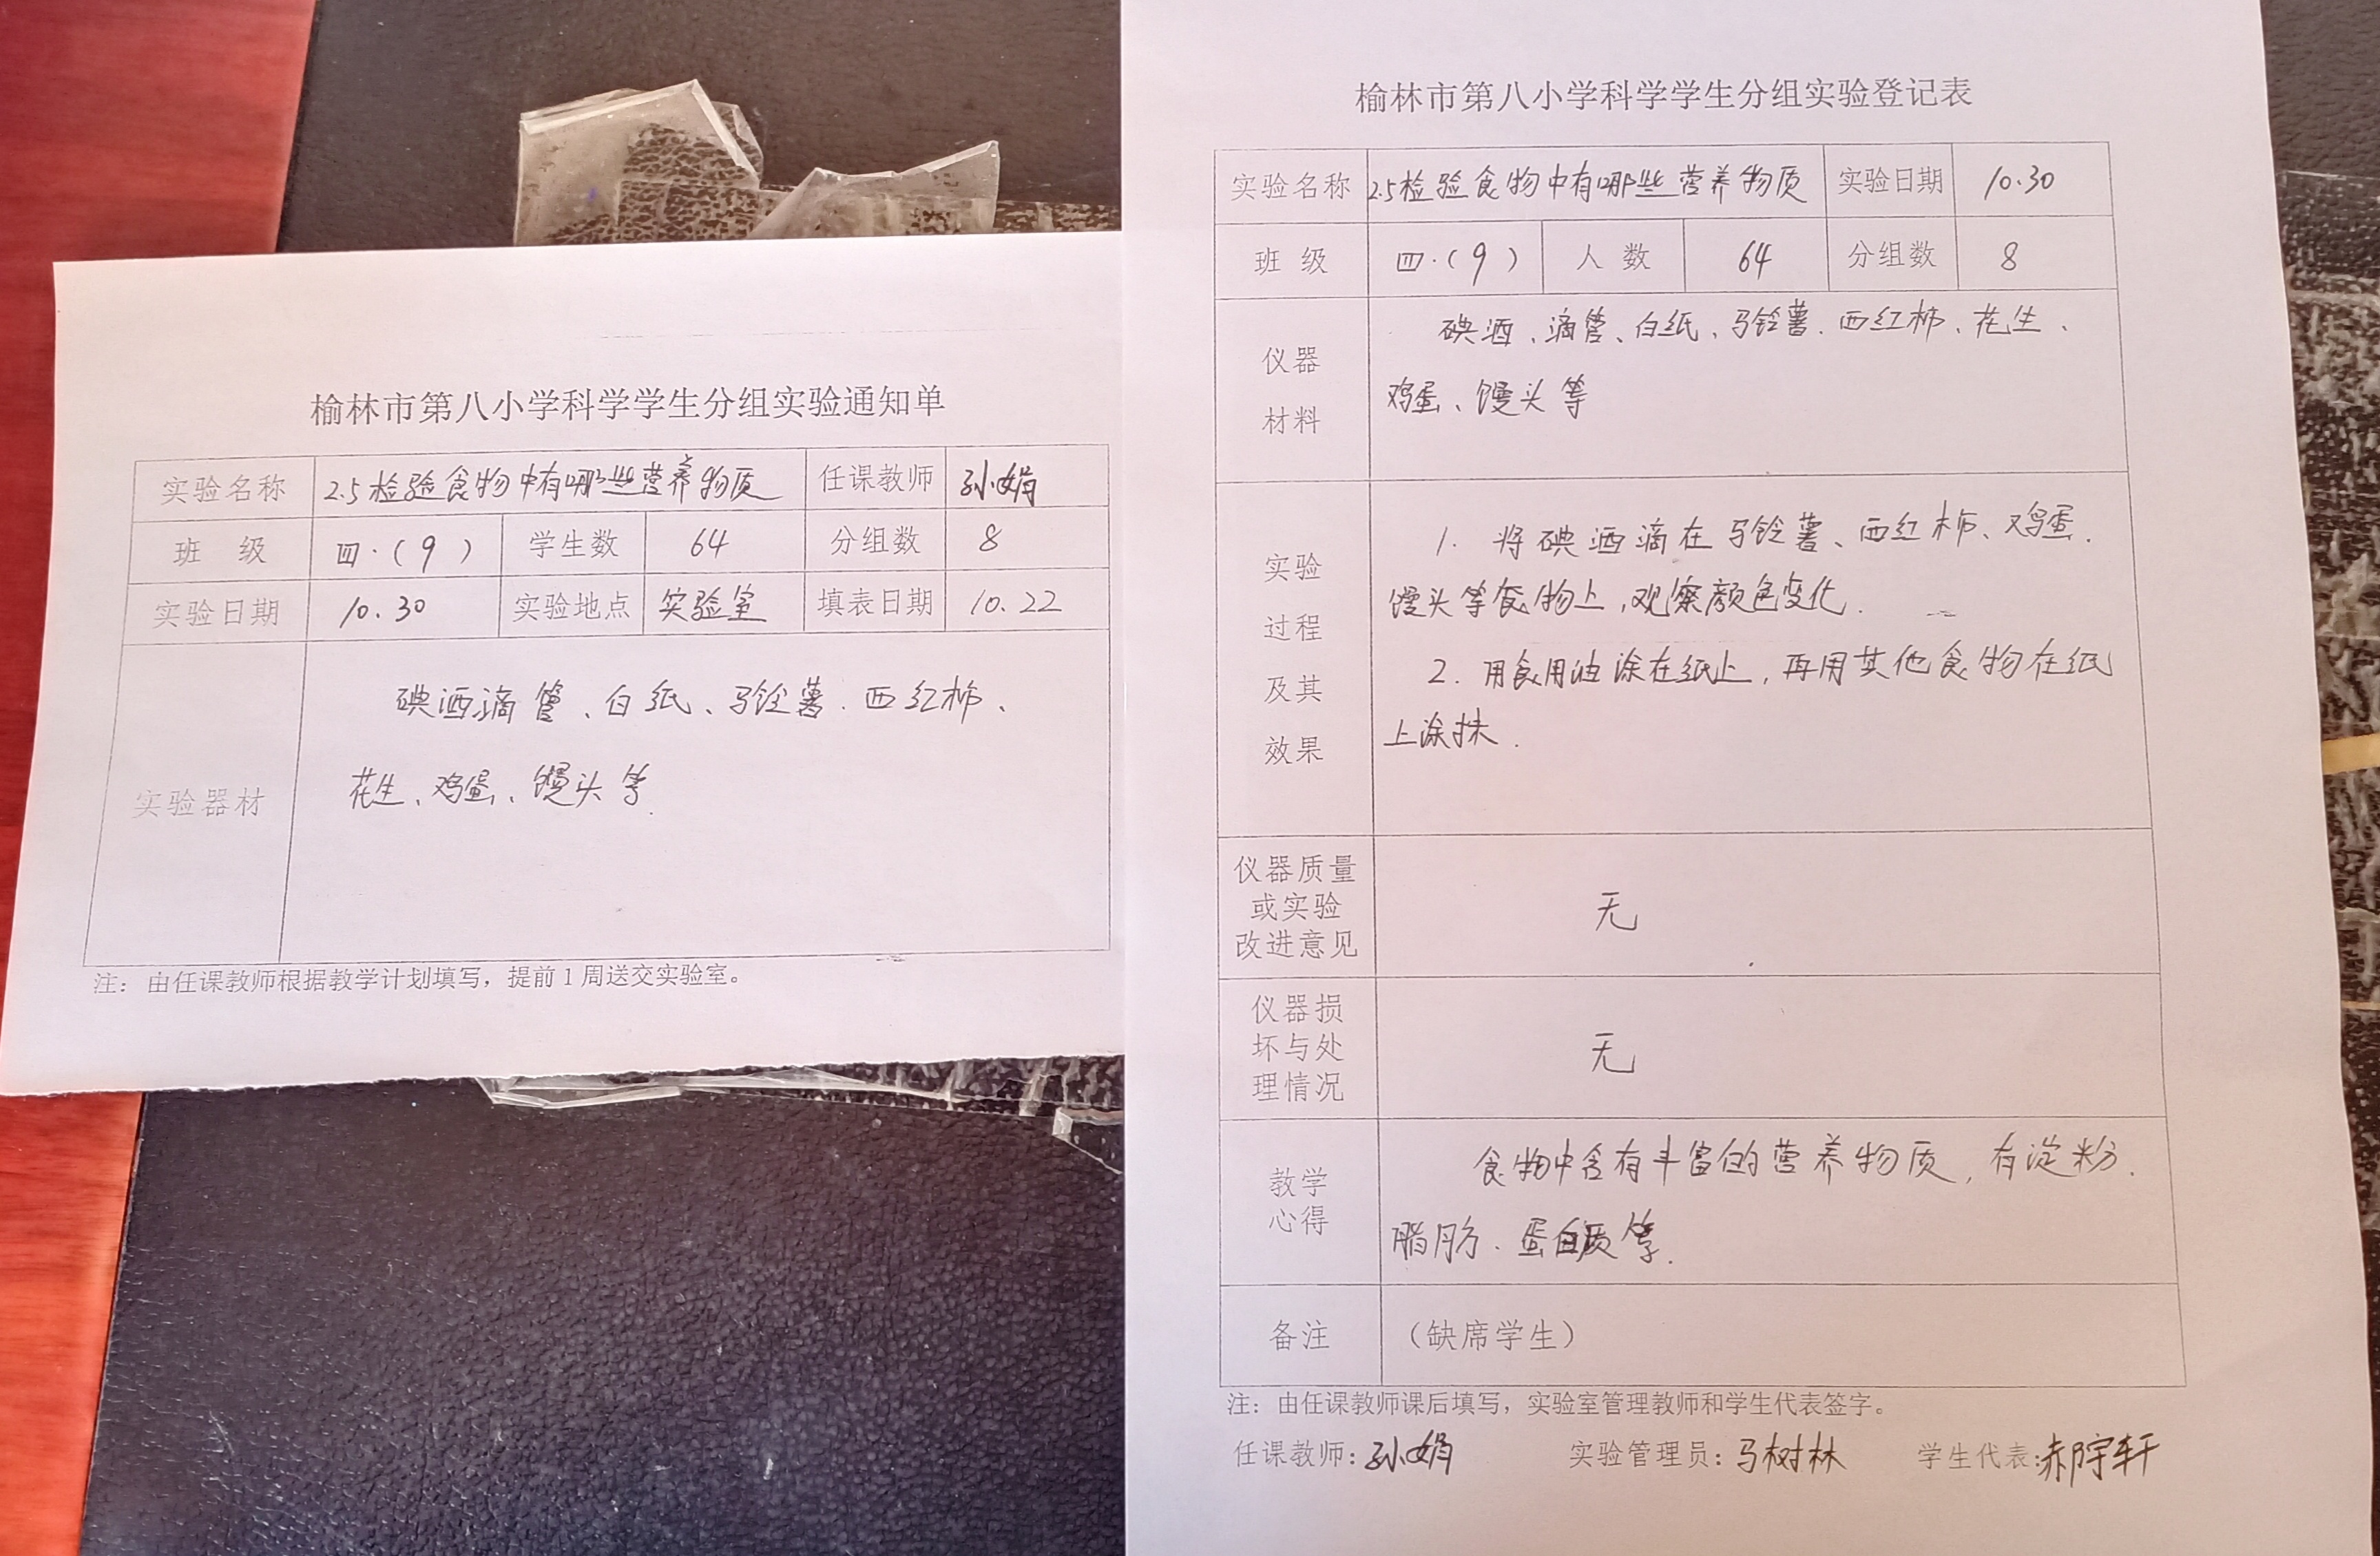 榆林市第八小学科学学生分组实验通知单
实验名称 2.5检验食物中有哪些营养物质 任课教师 孙娟
班 级 四·(9) 学生数 64 分组数 8
实验日期 10.30 实验地点 实验室 填表日期 10.22
实验器材
碘酒、滴管、白纸、马铃薯、西红柿、
花生、鸡蛋、馒头等.
注：由任课教师根据教学计划填写，提前1周送交实验室。
榆林市第八小学科学学生分组实验登记表
实验名称 2.5检验食物中有哪些营养物质 实验日期 10.30
班 级 四·(9) 人 数 64 分组数 8
仪器
材料
碘酒、滴管、白纸、马铃薯、西红柿、花生、
鸡蛋、馒头等
实验
过程
及其
效果
1. 将碘酒滴在马铃薯、西红柿、鸡蛋、
馒头等食物上,观察颜色变化.
2. 用食用油涂在纸上,再用其他食物在纸
上涂抹.
仪器质量
或实验
改进意见
无
仪器损
坏与处
理情况
无
教学
心得
食物中含有丰富的营养物质,有淀粉、
脂肪、蛋白质等.
备注 （缺席学生）
注：由任课教师课后填写，实验室管理教师和学生代表签字。
任课教师：孙娟 实验管理员：马树林 学生代表：宇轩